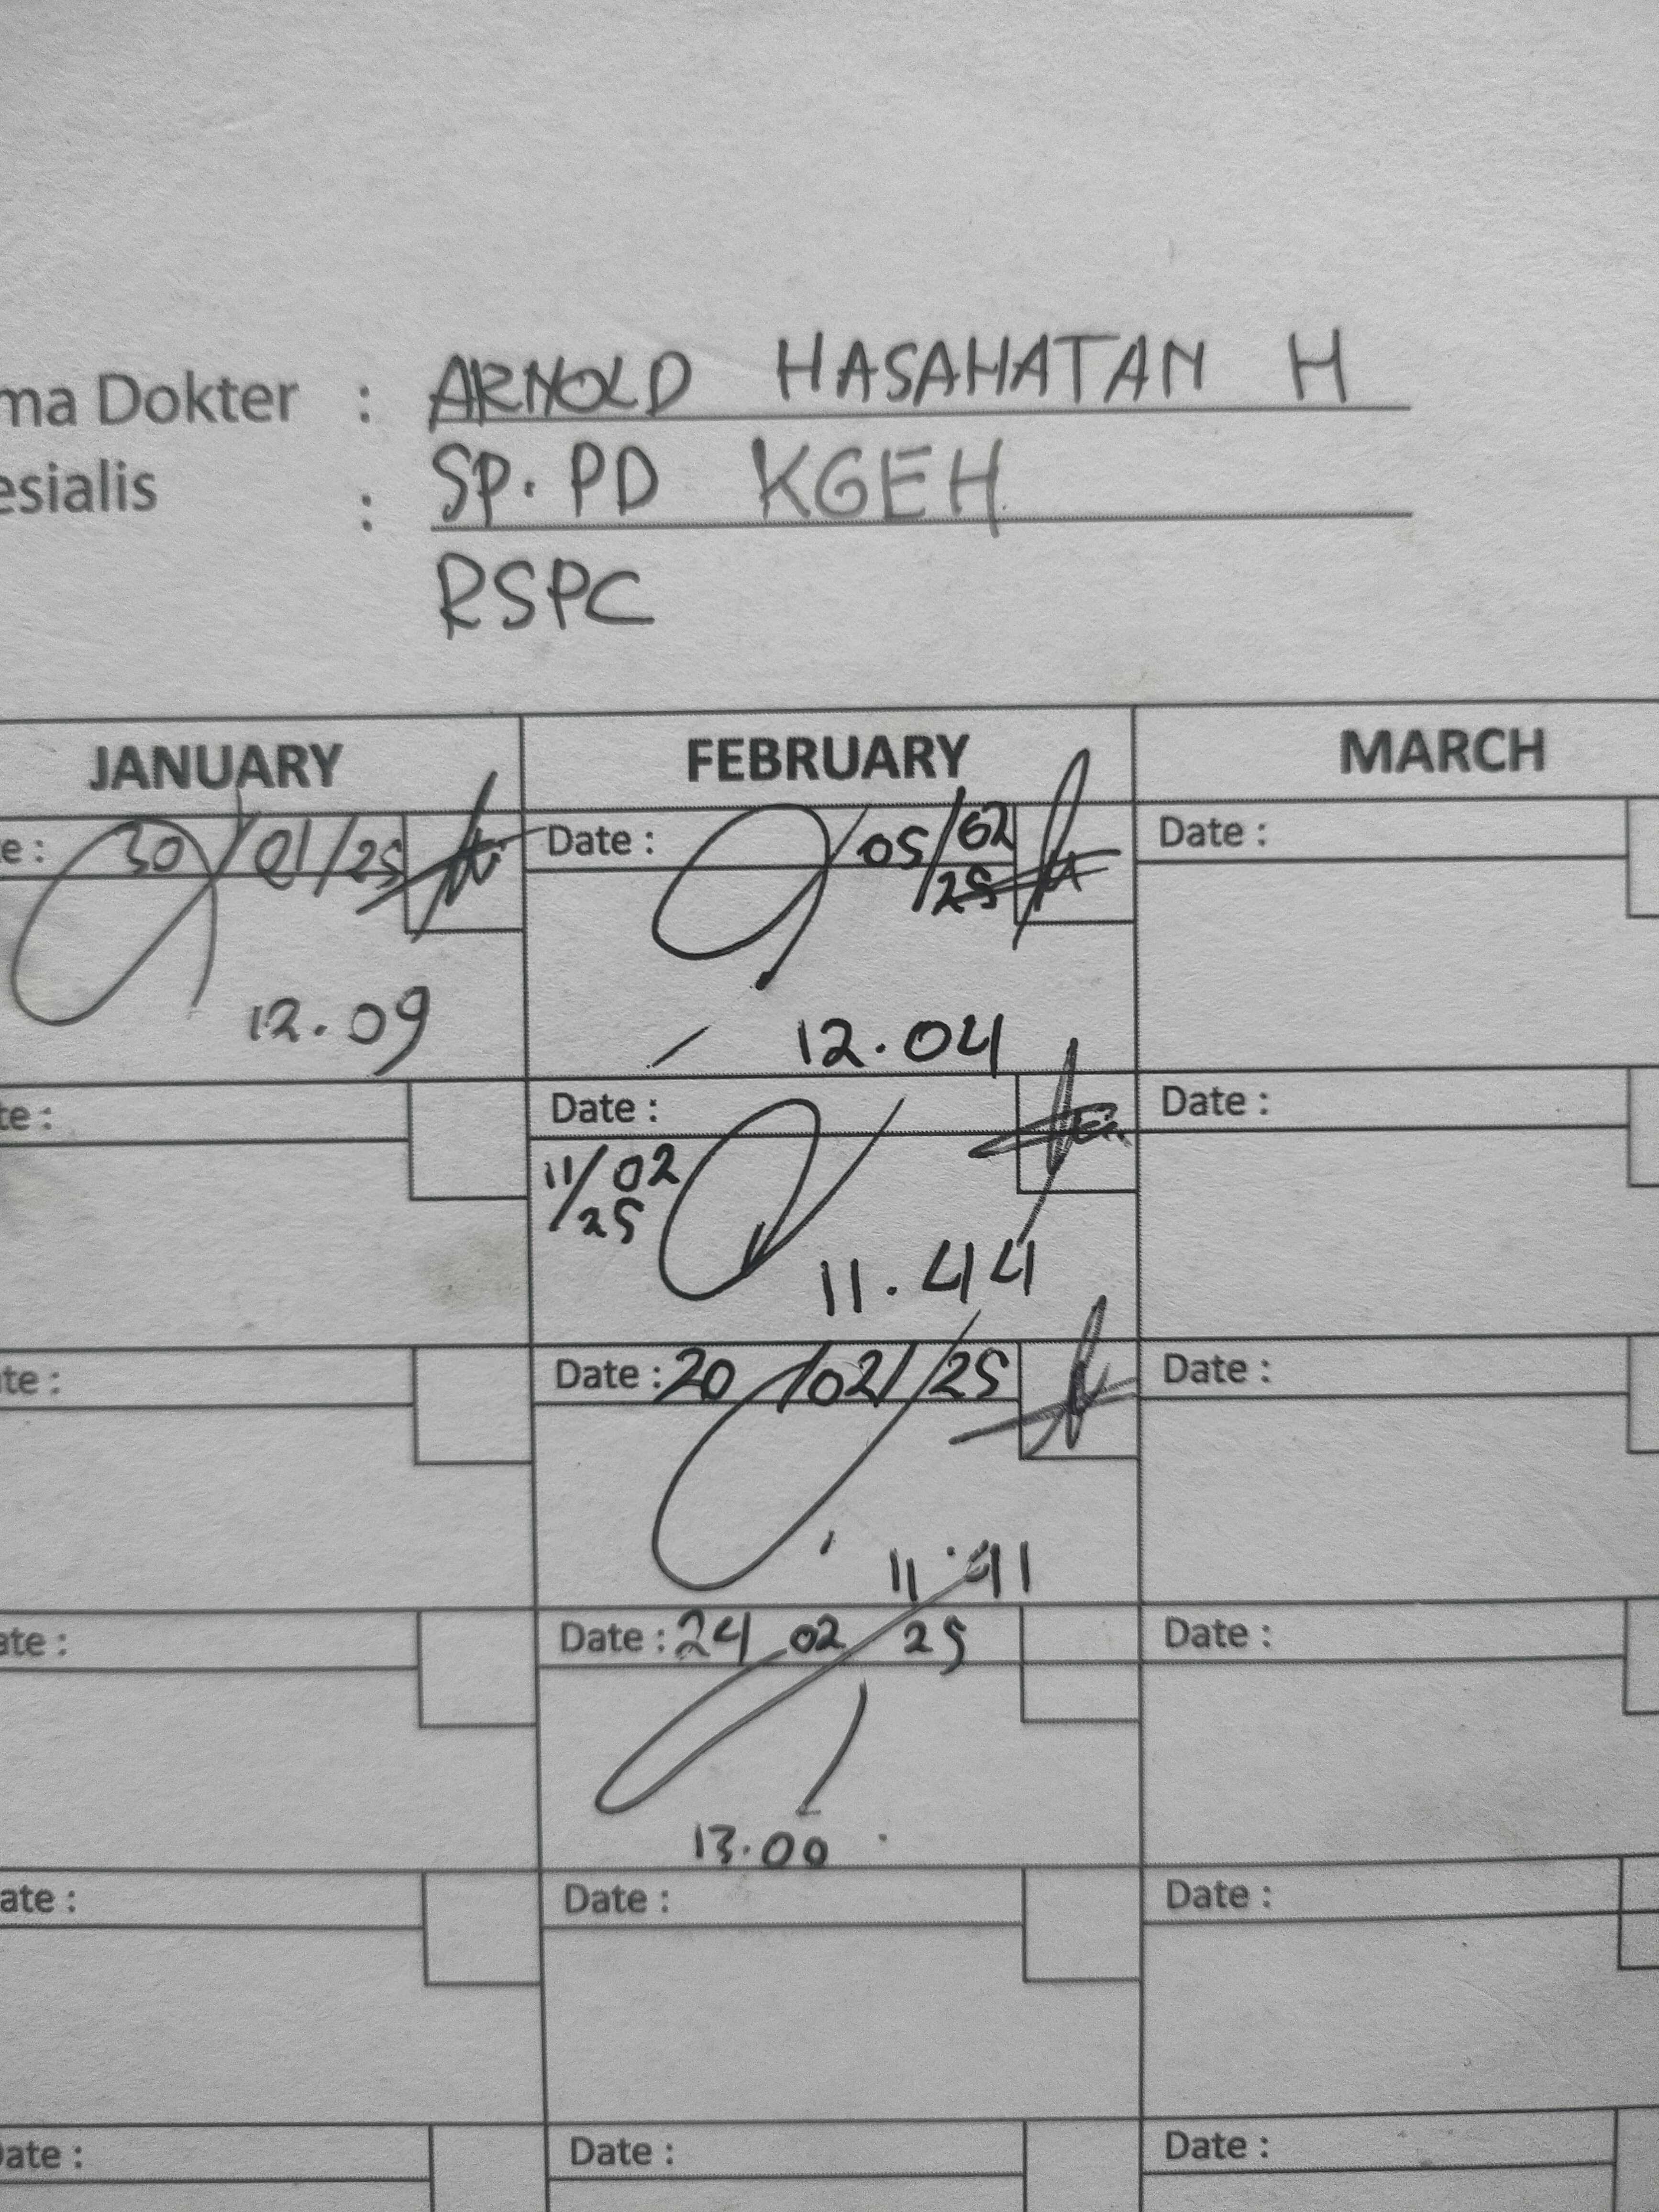 ma Dokter : ARNOLD HASAHATAN H
esialis : SP. PD KGEH
RSPC
JANUARY FEBRUARY MARCH
e : 30/01/25 Date : 05/02 Date :
/25
12.09 12.04
te : Date : Date :
11/02
/25
11.44
te : Date : 20/02/25 Date :
11.41
ate : Date : 24 02 25 Date :
13.00
ate : Date : Date :
Date : Date : Date :